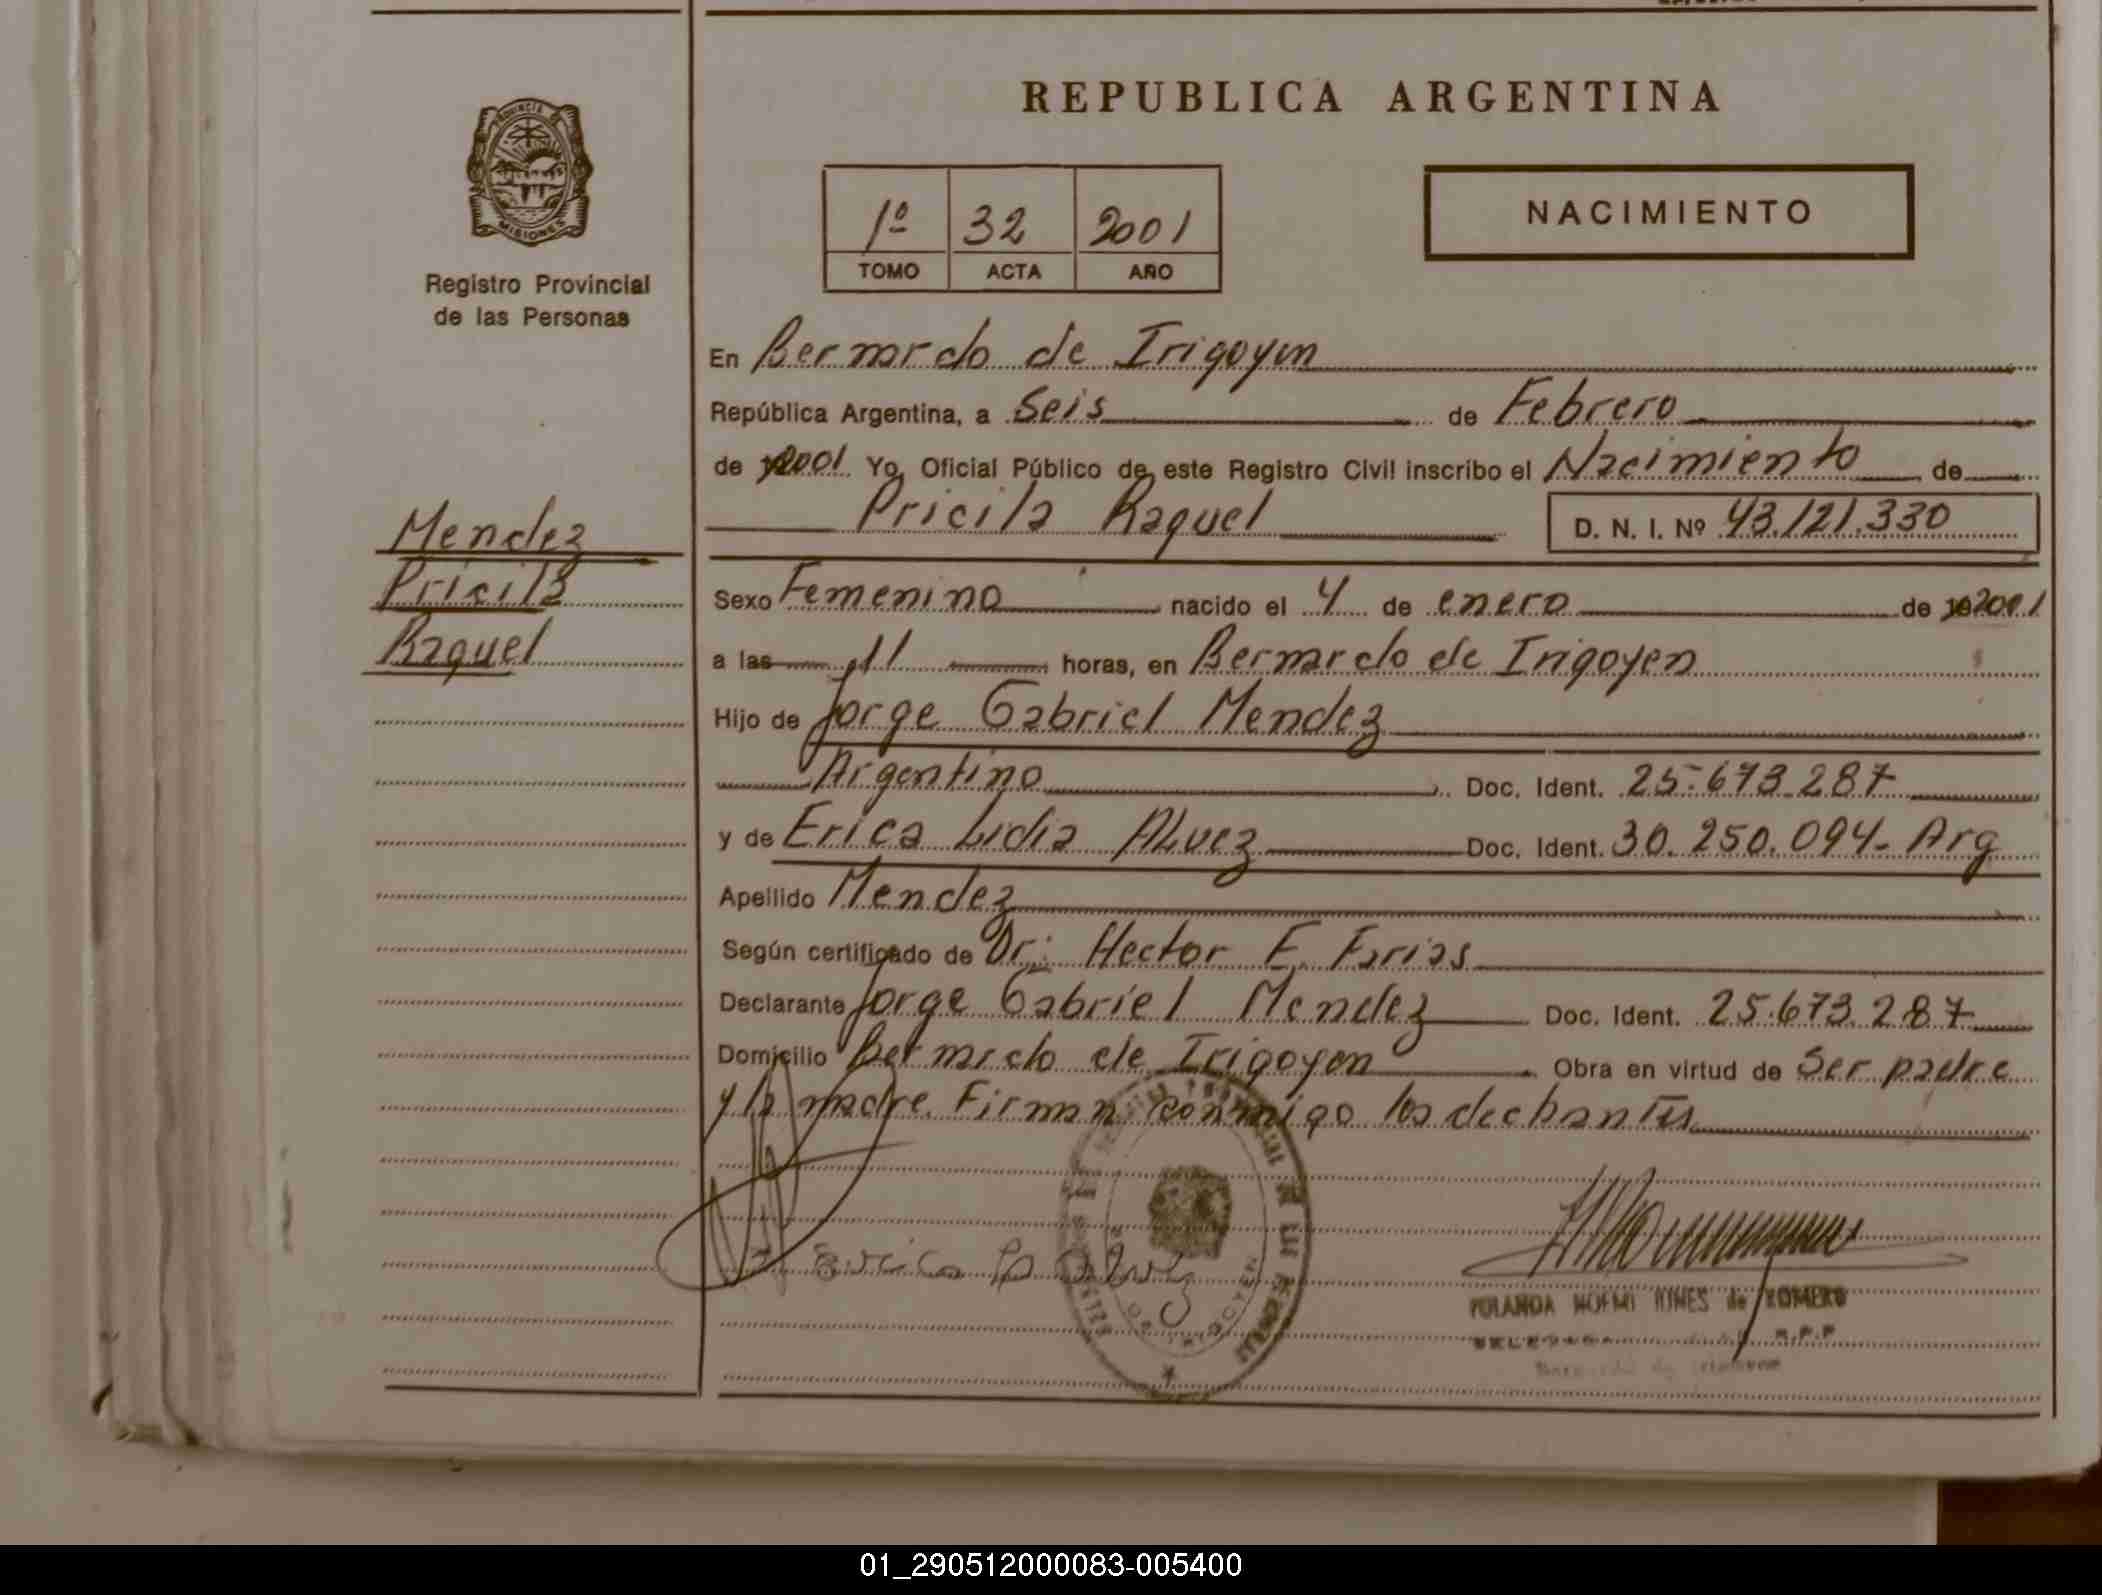 REPUBLICA ARGENTINA
PROVINCIA DE
MISIONES
Registro Provincial
de las Personas
1º 32 2001
TOMO ACTA AÑO
NACIMIENTO
En Bernardo de Irigoyen
República Argentina, a Seis de Febrero
de 2001 Yo, Oficial Público de este Registro Civil inscribo el Nacimiento de
Pricila Raquel D. N. I. Nº 43.121.330
Mendez
Pricila
Raquel
Sexo Femenino nacido el 4 de enero de 2001
a las 11 horas, en Bernardo de Irigoyen
Hijo de Jorge Gabriel Mendez
Argentino Doc. Ident. 25.673.287
y de Erica Lidia Alvez Doc. Ident. 30.250.094- Arg
Apellido Mendez
Según certificado de Dr: Hector E. Farias
Declarante Jorge Gabriel Mendez Doc. Ident. 25.673.287
Domicilio Bernardo de Irigoyen Obra en virtud de Ser padre
y la madre. Firman conmigo los declarantes
YOLANDA NOEMI de ROMERO
R.P.P
01_290512000083-005400